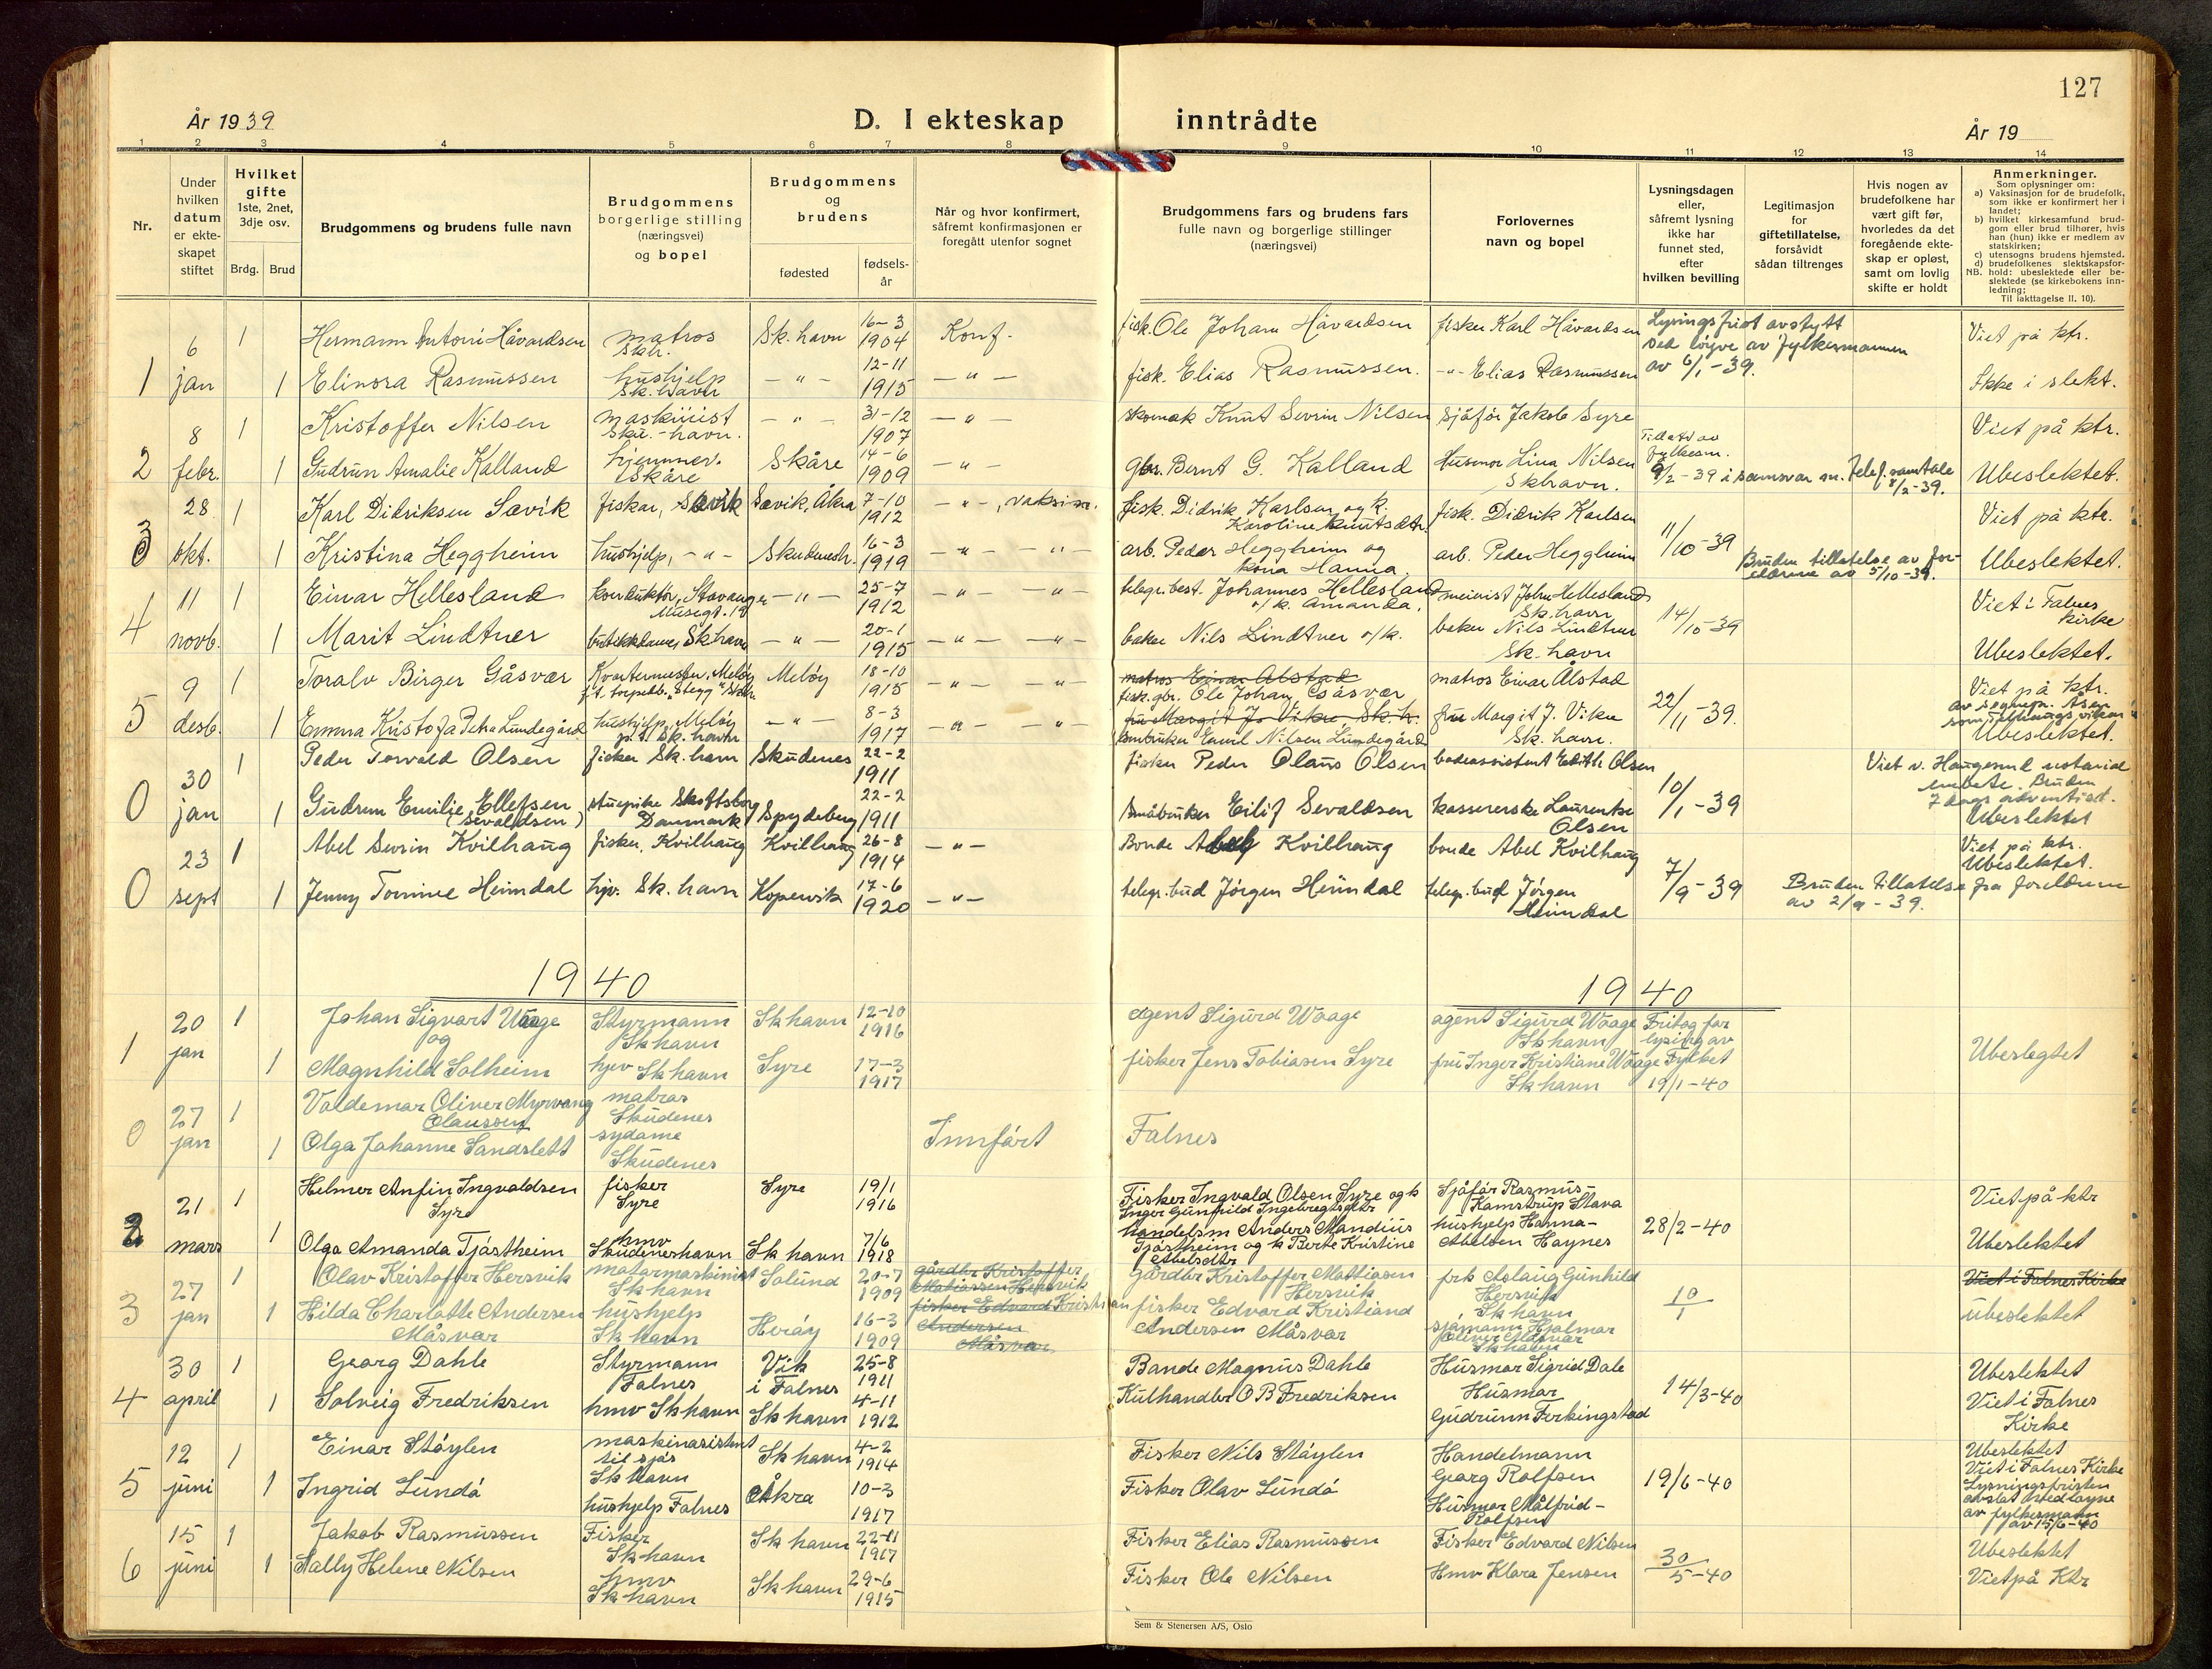 127
År 1939
D. I ekteskap inntrådte
År 19
1 2 3 4 5 6 7 8 9 10 11 12 13 14
Nr.
Under hvilken datum er ekte-skapet stiftet
Hvilket gifte 1ste, 2net, 3dje osv.
Brdg. Brud
Brudgommens og brudens fulle navn
Brudgommens borgerlige stilling (næringsvei) og bopel
Brudgommens og brudens
fødested
fødsels-år
Når og hvor konfirmert, såfremt konfirmasjonen er foregått utenfor sognet
Brudgommens fars og brudens fars fulle navn og borgerlige stillinger (næringsvei)
Forlovernes navn og bopel
Lysningsdagen eller, såfremt lysning ikke har funnet sted, efter hvilken bevilling
Legitimasjon for giftetillatelse, forsåvidt sådan tiltrenges
Hvis nogen av brudefolkene har vært gift før, hvorledes da det foregående ekte-skap er opløst, samt om lovlig skifte er holdt
Anmerkninger.
Som oplysninger om:
a) Vaksinasjon for de brudefolk, som ikke er konfirmert her i landet;
b) hvilket kirkesamfund brud-gom eller brud tilhører, hvis han (hun) ikke er medlem av statskirken;
c) utensogns brudens hjemsted.
d) brudefolkenes slektskapsfor-hold: ubeslektede eller be-slektede (se kirkebokens inn-ledning;
NB. Til iakttagelse II. 10).
1 6 jan 1 Hermann Antoni Håvardsen matros Skh. Sk. havn 16-3 1904 Konf. fisk. Ole Johan Håvardsen fisker Karl Håvardsen Lysingsfrist avstytt ved løyve av fylkesmannen av 6/1-39. Viet på ktr.
1 Elinora Rasmussen hushjelp Sk. havn - " - 12-11 1915 - " - fisk. Elias Rasmussen. - " - Elias Rasmussen Ikke i slekt.
2 8 febr. 1 Kristoffer Nilsen maskinist Sku.-havn. - " - 31-12 1907 - " - skomak Knut Sevrin Nilsen sjåfør Jakob Syre Viet på ktr.
1 Gudrun Amalie Kalland hjemmev. Skåre Skåre 14-6 1909 - " - gbr. Bernt G. Kalland Husmor Lina Nilsen Skhavn. Tillatt av fylkesm. 9/2-39 i samsvar m. telef. samtale 8/2-39. Ubeslektet.
3 28 okt. 1 Karl Didriksen Sævik fisker, Sævik Sævik, Åkra 7-10 1912 - " -, vaksine. fisk. Didrik Karlsen og k. Karoline Knutsdtr. fisk. Didrik Karlsen 11/10-39 Viet på ktr.
1 Kristina Heggheim hushjelp, - " - Skudenesh. 16-3 1919 - " - - " - arb. Peder Heggheim og kona Hanna. arb. Peder Heggheim Bruden tillatelse av for-eldrene av 5/10-39. Ubeslektet.
4 11 novb. 1 Einar Hellesland konduktør, Stavanger Musegt. 19 - " - 25-7 1912 - " - - " - telegr.best. Johannes Hellesland o/k. Amanda. meierist John Hellesland Sk.havn 14/10-39 Viet i Falnes kirke
1 Marit Lindtner butikkdame, Sk.havn - " - 20-1 1915 - " - - " - baker Nils Lindtner o/k. baker Nils Lindtner Sk.havn Ubeslektet.
5 9 desb. 1 Toralv Birger Gåsvær Kvartermester, Meløy p.t. torpedb. "Stegg" Skhr. Meløy 18-10 1915 - " - - " - matros Einar Alstad fisk. gbr. Ole Johan Gåsvær matros Einar Alstad 22/11-39. Viet på ktr. av sognepr. Åsen som tilkallings vikar
1 Emma Kristofa Petra Lundegård hushjelp, Meløy p.t. Sk. havn - " - 8-3 1917 - " - - " - fru Margit J. Vikre, Sk.h. småbruker Emil Nilsen Lundegård fru Margit J. Vikre Sk. havn. Ubeslektet.
0 30 jan 1 Peder Torvald Olsen fisker Sk. havn Skudenes 22-2 1911 fisker Peder Olaus Olsen badeassistent Edith Olsen 10/1-39 Viet v. Haugesund notarial embete. Bruden 7 dags adventist. Ubeslektet
1 Gudrun Emilie Ellefsen (Sevaldsen) stuepike Skottsborg Danmark Spydeberg 22-2 1911 Småbruker Eilif Sevaldsen kassererske Laurentse Olsen
0 23 sept 1 Abel Sevrin Kvilhaug fisker, Kvilhaug Kvilhaug 26-8 1914 - " - Bonde Abel Kvilhaug bonde Abel Kvilhaug 7/9-39 Viet på ktr. Ubeslektet.
1 Jenny Tomine Heimdal hjv. Sk. havn Kopervik 17-6 1920 - " - telegr.bud Jørgen Heimdal telegr.bud Jørgen Heimdal Bruden tillatelse fra foreldrene av 2/9-39.
1940 1940
1 20 jan 1 Johan Sigvart Waage og Styrmann Skhavn Skhavn 12-10 1916 agent Sigurd Waage agent Sigurd Waage Skhavn Fritag for lysing av Fylket 19/1-40
1 Magnhild Solheim hjv Skhavn Syre 17-3 1917 fisker Jens Tobiasen Syre fru Inger Kristiane Waage Skhavn Ubeslegtet
0 27 jan 1 Valdemar Oliver Myrvang Olaussen matros Skudenes
1 Olga Johanne Sandslett sydame Skudenes Innført Falnes
2 21 mars 1 Helmer Anfin Ingvaldsen Syre fisker Syre Syre 19/1 1916 Fisker Ingvald Olsen Syre og k Inger Gunhild Ingebregtsdtr Sjåfør Rasmus Kamstrup Stava 28/2-40 Viet på ktr
1 Olga Amanda Tjøstheim hmv Skudeneshavn Skhavn 7/6 1918 handelsm Anders Mandius Tjøstheim og k Berte Kristine Abelsdtr hushjelp Hanna Abelsen Haynes Ubeslektet
3 27 jan 1 Olav Kristoffer Hersvik motormaskinist Skhavn Solund 20-7 1909 gårdbr Kristoffer Matiassen Hersvik gårdbr Kristoffer Mattiasen Hersvik frk Aslaug Gunhild Hersvik Skhavn 10/1 Viet i Falnes Kirke
1 Hilda Charlotte Andersen Måsvær hushjelp Skhavn Herøy 16-3 1909 fisker Edvard Kristian Andersen Måsvær fisker Edvard Kristiand Andersen Måsvær sjømann Hjalmar Oliver Måsvær Skhavn ubeslektet
4 30 april 1 Georg Dahle Styrmann Falnes Vik i Falnes 25-8 1911 Bonde Magnus Dahle Husmor Sigrid Dale 14/3-40 Ubeslektet
1 Solveig Fredriksen hmv Skhavn Skhavn 4-11 1912 Kulhandler O B Fredriksen Husmor Gudrunn Ferkingstad Viet i Falnes Kirke
5 12 juni 1 Einar Støylen maskinasistent til sjøs Skhavn Skhavn 4-2 1914 Fisker Nils Støylen Handelmann Georg Rolfsen 19/6-40 Ubeslektet Viet i Falnes Kirke
1 Ingrid Lundø hushjelp Falnes Åkra 10-3 1917 Fisker Olav Lundø Husmor Målfrid Rolfsen Lysningsfristen avslåt ved løyve av fylkesmann av 15/6-40
6 15 juni 1 Jakob Rasmussen Fisker Skhavn Skhavn 22-11 1917 Fisker Elias Rasmussen Fisker Edvard Nilsen 30/5-40 Ubeslektet
1 Sally Helene Nilsen hmv Skhavn Skhavn 29-6 1915 Fisker Ole Nilsen Hmv Klara Jensen Viet på Ktr
Sem & Stenersen A/S, Oslo